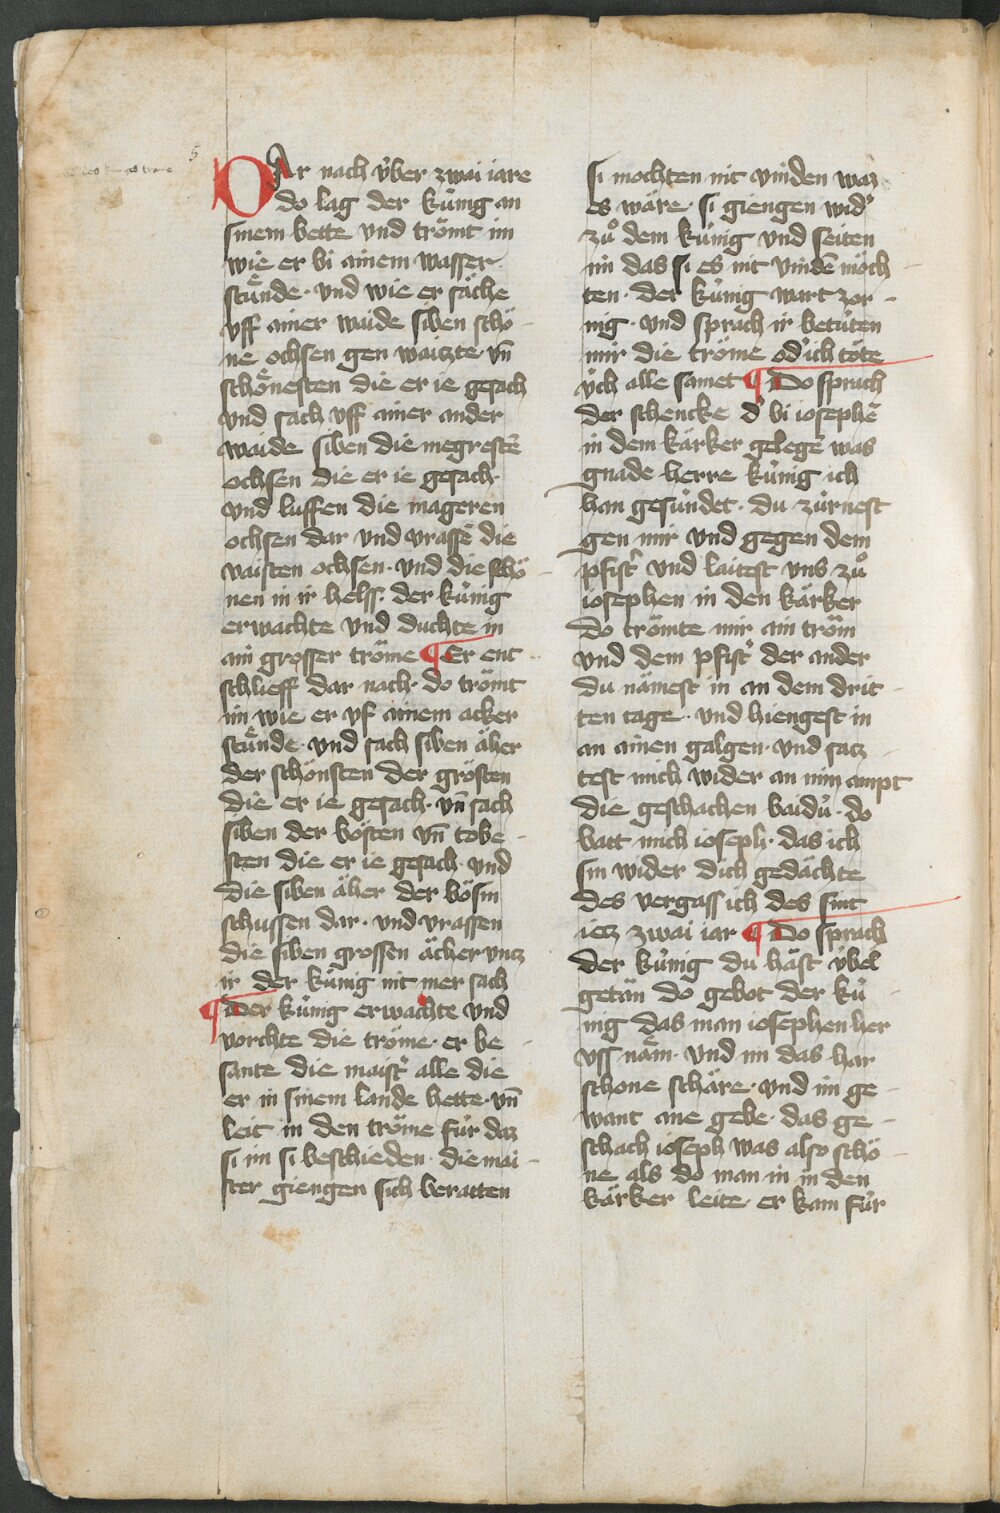 5
DAr nach v́ber zwai iare
do lag der kúnig an
sinem bette vnd trömt im
wie er bi ainem wasser
stuͤnde · vnd wie er säche
vff ainer waide siben schö-
ne ochsen gen waiczte · vn̄
schoͤnesten die er ie gesach
vnd sach vff ainer ander
waide siben die megrestē
ochsen die er ie gesach ·
vnd luffen die mageren
ochsen dar vnd vrassē die
vaisten ochsen · vnd die schö-
nen in ir helss · der kúnig
erwachte vnd duchte in
ain grosser tröme ¶ Er ent
schlieff dar nach · do trömt
im wie er vf ainem acker
stuͤnde · vnd sach siben äher
der schönsten der grösten
die er ie gesach · vn̄ sach
siben der bösten vn̄ tobe-
sten die er ie gesach · vnd
die siben äher der bösin
schussen dar · vnd vrassen
die siben grossen ächer vncz
ir der kúnig nit mer sach
¶ Der kúnig erwachte vnd
vorchte die tröme · er be-
sante die maistˀ alle die
er in sinem lande hette · vn̄
leit in den tröme fúr daz
si im si beschieden · die mai-
ster giengen sich beratten
si mochten nit vinden waz
es wäre · si giengen widˀ
zuͦ dem kúnig vnd seiten
im das si es nit vindē möch-
ten · der kúnig wart zor-
nig · vnd sprach ir betúten
mir die tröme odˀ ich töte
v́ch alle samet ¶ Do sprach
der schencke dˀ bi iosephē
in dem kärker gelegē was
gnade herre kúnig ich
han gesúndet · du zúrnest
gen mir vnd gegen dem
pfistˀ vnd laitest vns zuͦ
iosephen in den kärker
do trömte mir ain tröm
vnd dem pfistˀ der ander
du nämest in an dem drit-
ten tage · vnd hiengest in
an ainen galgen · vnd sacz-
test mich wider an min ampt
die geschachen baidú · do
batt mich ioseph · das ich
sin wider dich gedächte
des vergass ich des sint
iecz zwai iar ¶ Do sprach
der kúnig du häst v́bel
getän do gebot der kú-
nig das man iosephen her
vss näm · vnd im das har
schone schäre · vnd im ge-
want ane gebe · das ge-
schach ioseph was also schö-
ne als do man in in den
kärker leite · er kam fúr